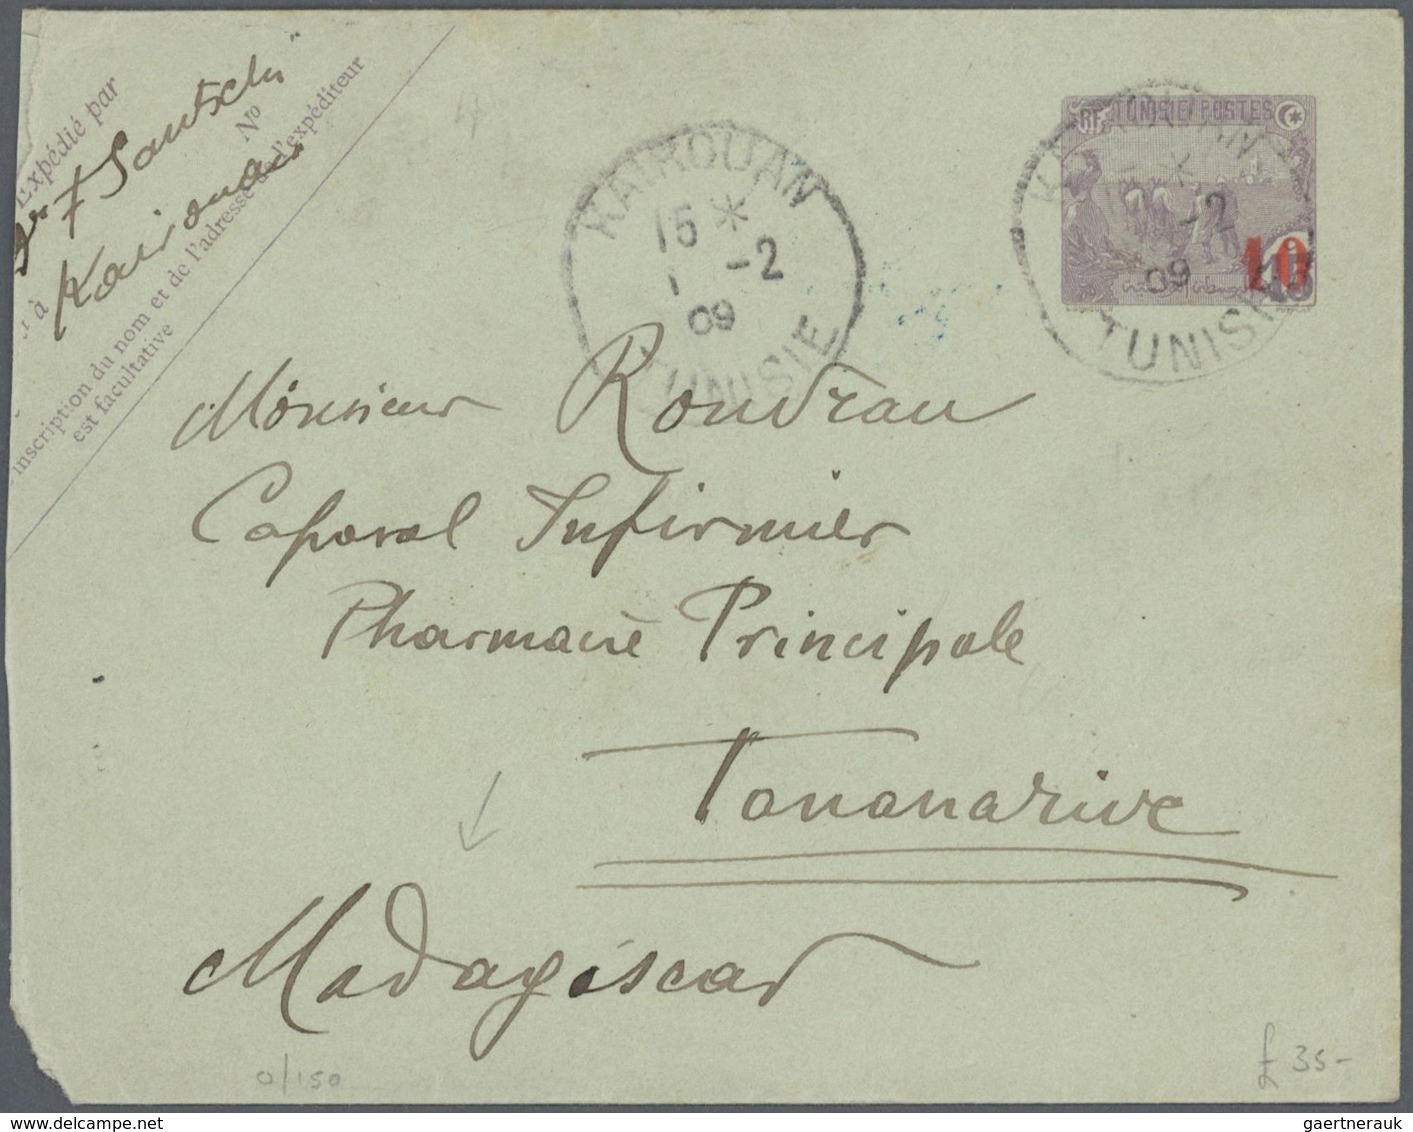 Expédié par
Dr F Santschi
N°
à Kairouan
Inscription du nom et de l'adresse de l'expéditeur
est facultative
KAIROUAN
15 *
1 -2
09
TUNISIE
RF TUNISIE POSTES
10
KAIROUAN
15 *
1 -2
09
TUNISIE
Monsieur Rondreau
Caporal Infirmier
Pharmacie Principale
Tananarive
Madagascar
0/150
£ 35-
gaertnerauk @ delcampe.net